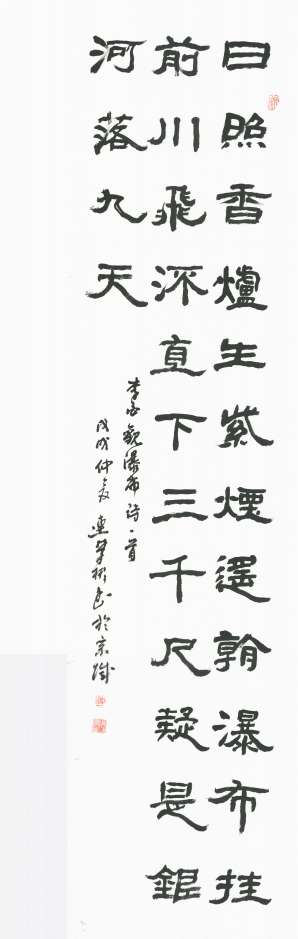 日照香爐生紫煙遥看瀑布挂
前川飛流直下三千尺疑是銀
河落九天
李白觀瀑布詩一首
戊戌仲夏連書於京城